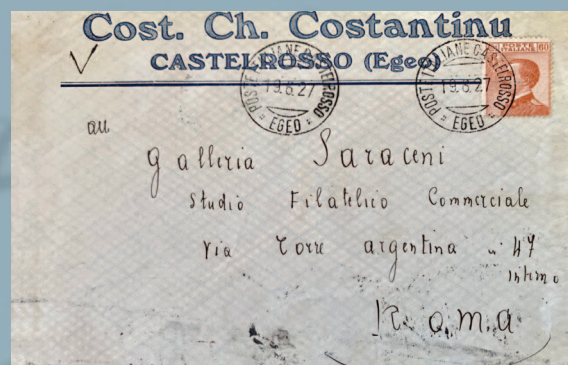 Cost. Ch. Costantinu
CASTELROSSO (Egeo)
POSTE ITALIANE CASTELROSSO
19.8.27
= EGEO =
POSTE ITALIANE CASTELROSSO
19.8.27
= EGEO =
60
au
Galleria Saraceni
Studio Filatelico Commerciale
Via Torre argentina n 47
interno
Roma